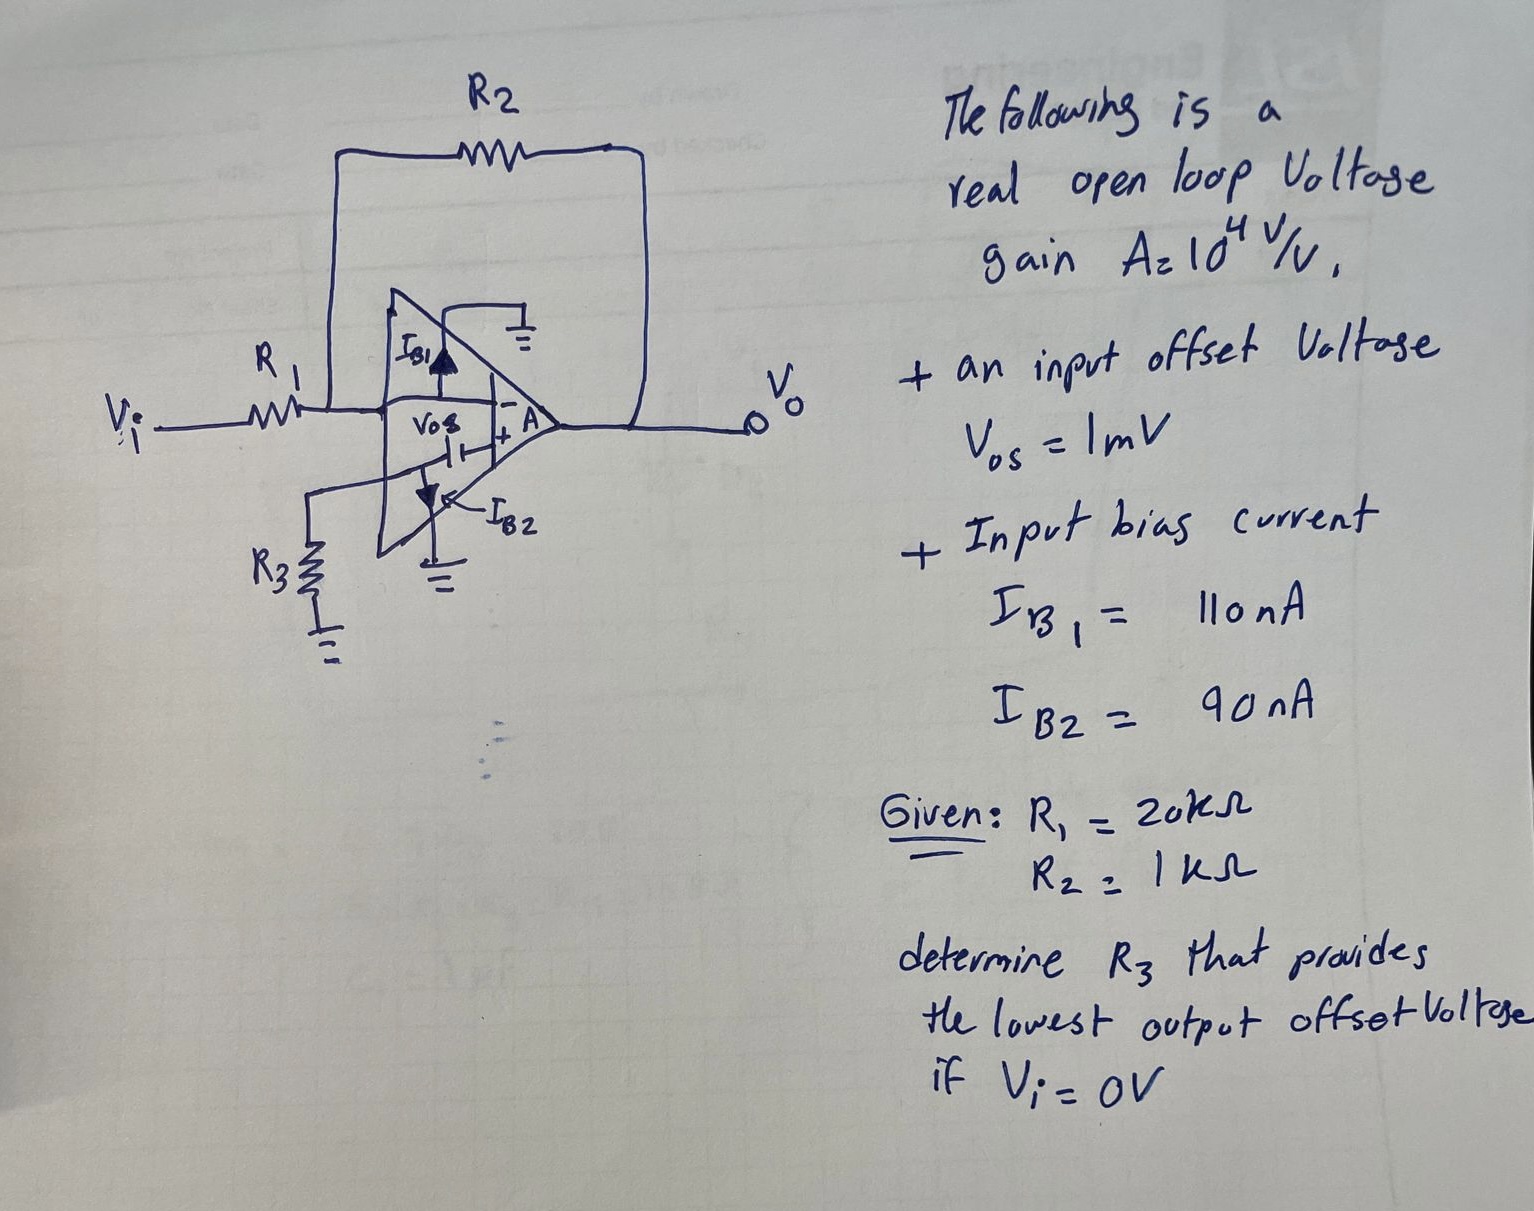 R2
R1
Vi
IB1
Vos
-
+
A
Vo
IB2
R3
The following is a
real open loop Voltage
gain A= 10⁴ V/V,
+ an input offset Voltage
Vos = 1mV
+ Input bias current
IB1 = 110nA
IB2 = 90nA
Given: R1 = 20kΩ
R2 = 1kΩ
determine R3 that provides
the lowest output offset Voltage
if Vi = 0V